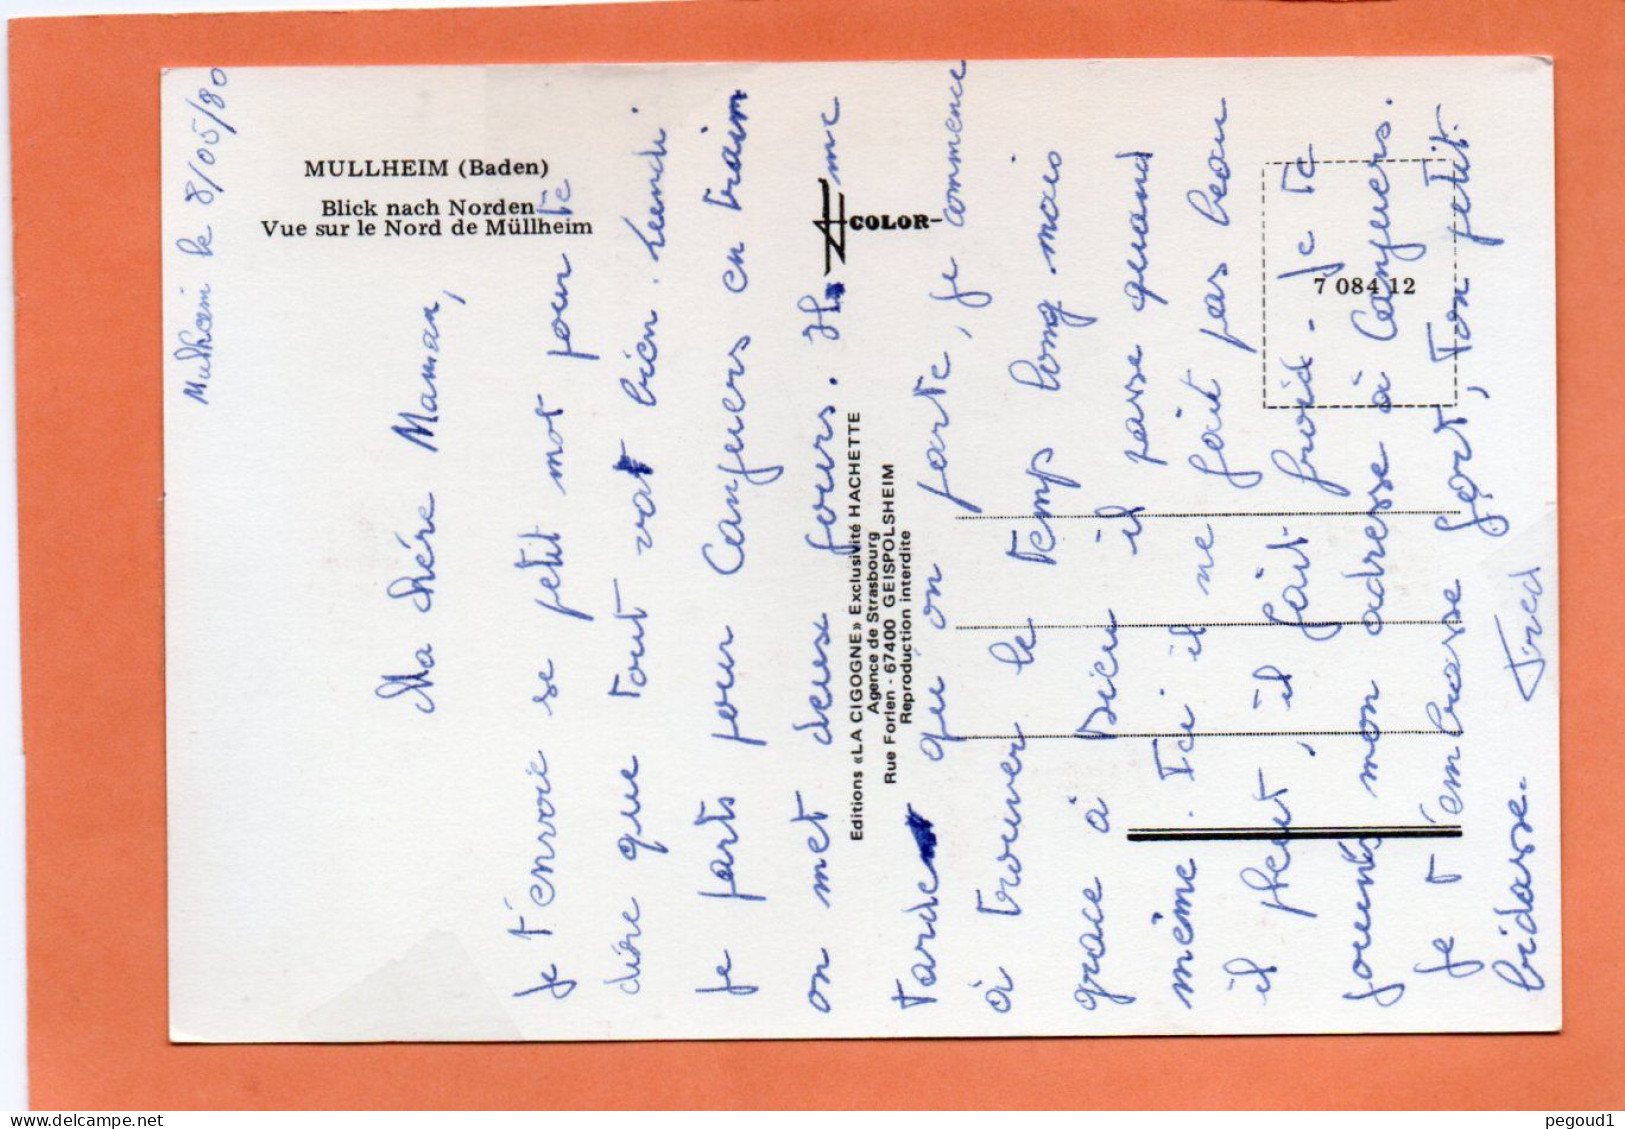 MULLHEIM (Baden)
Blick nach Norden
Vue sur le Nord de Müllheim
COLOR
7 084 12
Editions «LA CIGOGNE» Exclusivité HACHETTE
Agence de Strasbourg
Rue Forlen - 67400 GEISPOLSHEIM
Reproduction interdite
Mulheim le 8/05/80
Ma chére Maman,
Je t'envoie se petit mot pour te
dire que tout vat bien. Lundi
Je parts pour Canjuers en train
on met deux jours. Il me
tarde qu'on parte, je commence
à trouver le temp long mais
grace à Dieu il passe quand
même. Ici il ne fait pas beau
il pleut, il fait froid - Je te
fournis mon adresse à Canjuers.
Je t'embrasse fort, Ton petit
bidasse. Fred
pegoud1